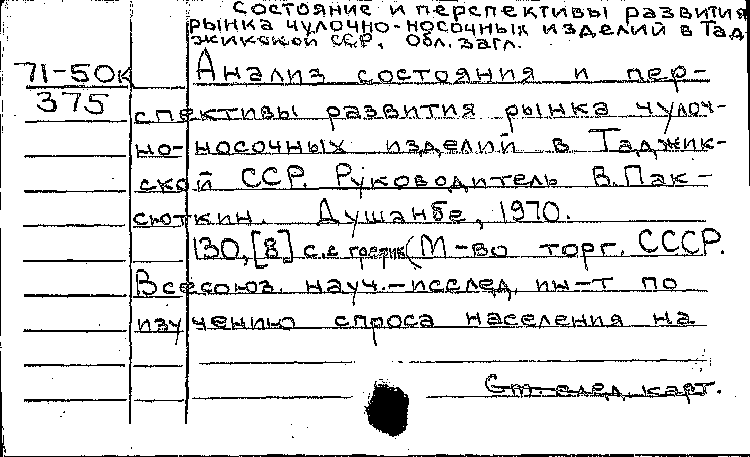 Состояние и перспективы развития
рынка чулочно-носочных изделий в Тад-
жикской ССР. Обл. загл.
71-50к
375
Анализ состояния и пер-
спективы развития рынка чулоч-
но-носочных изделий в Таджик-
ской ССР. Руководитель В. Пак-
сюткин. Душанбе, 1970.
130, [8] с. с график (М-во торг. СССР.
Всесоюз. науч.-исслед. ин-т по
изучению спроса населения на
См. след. карт.